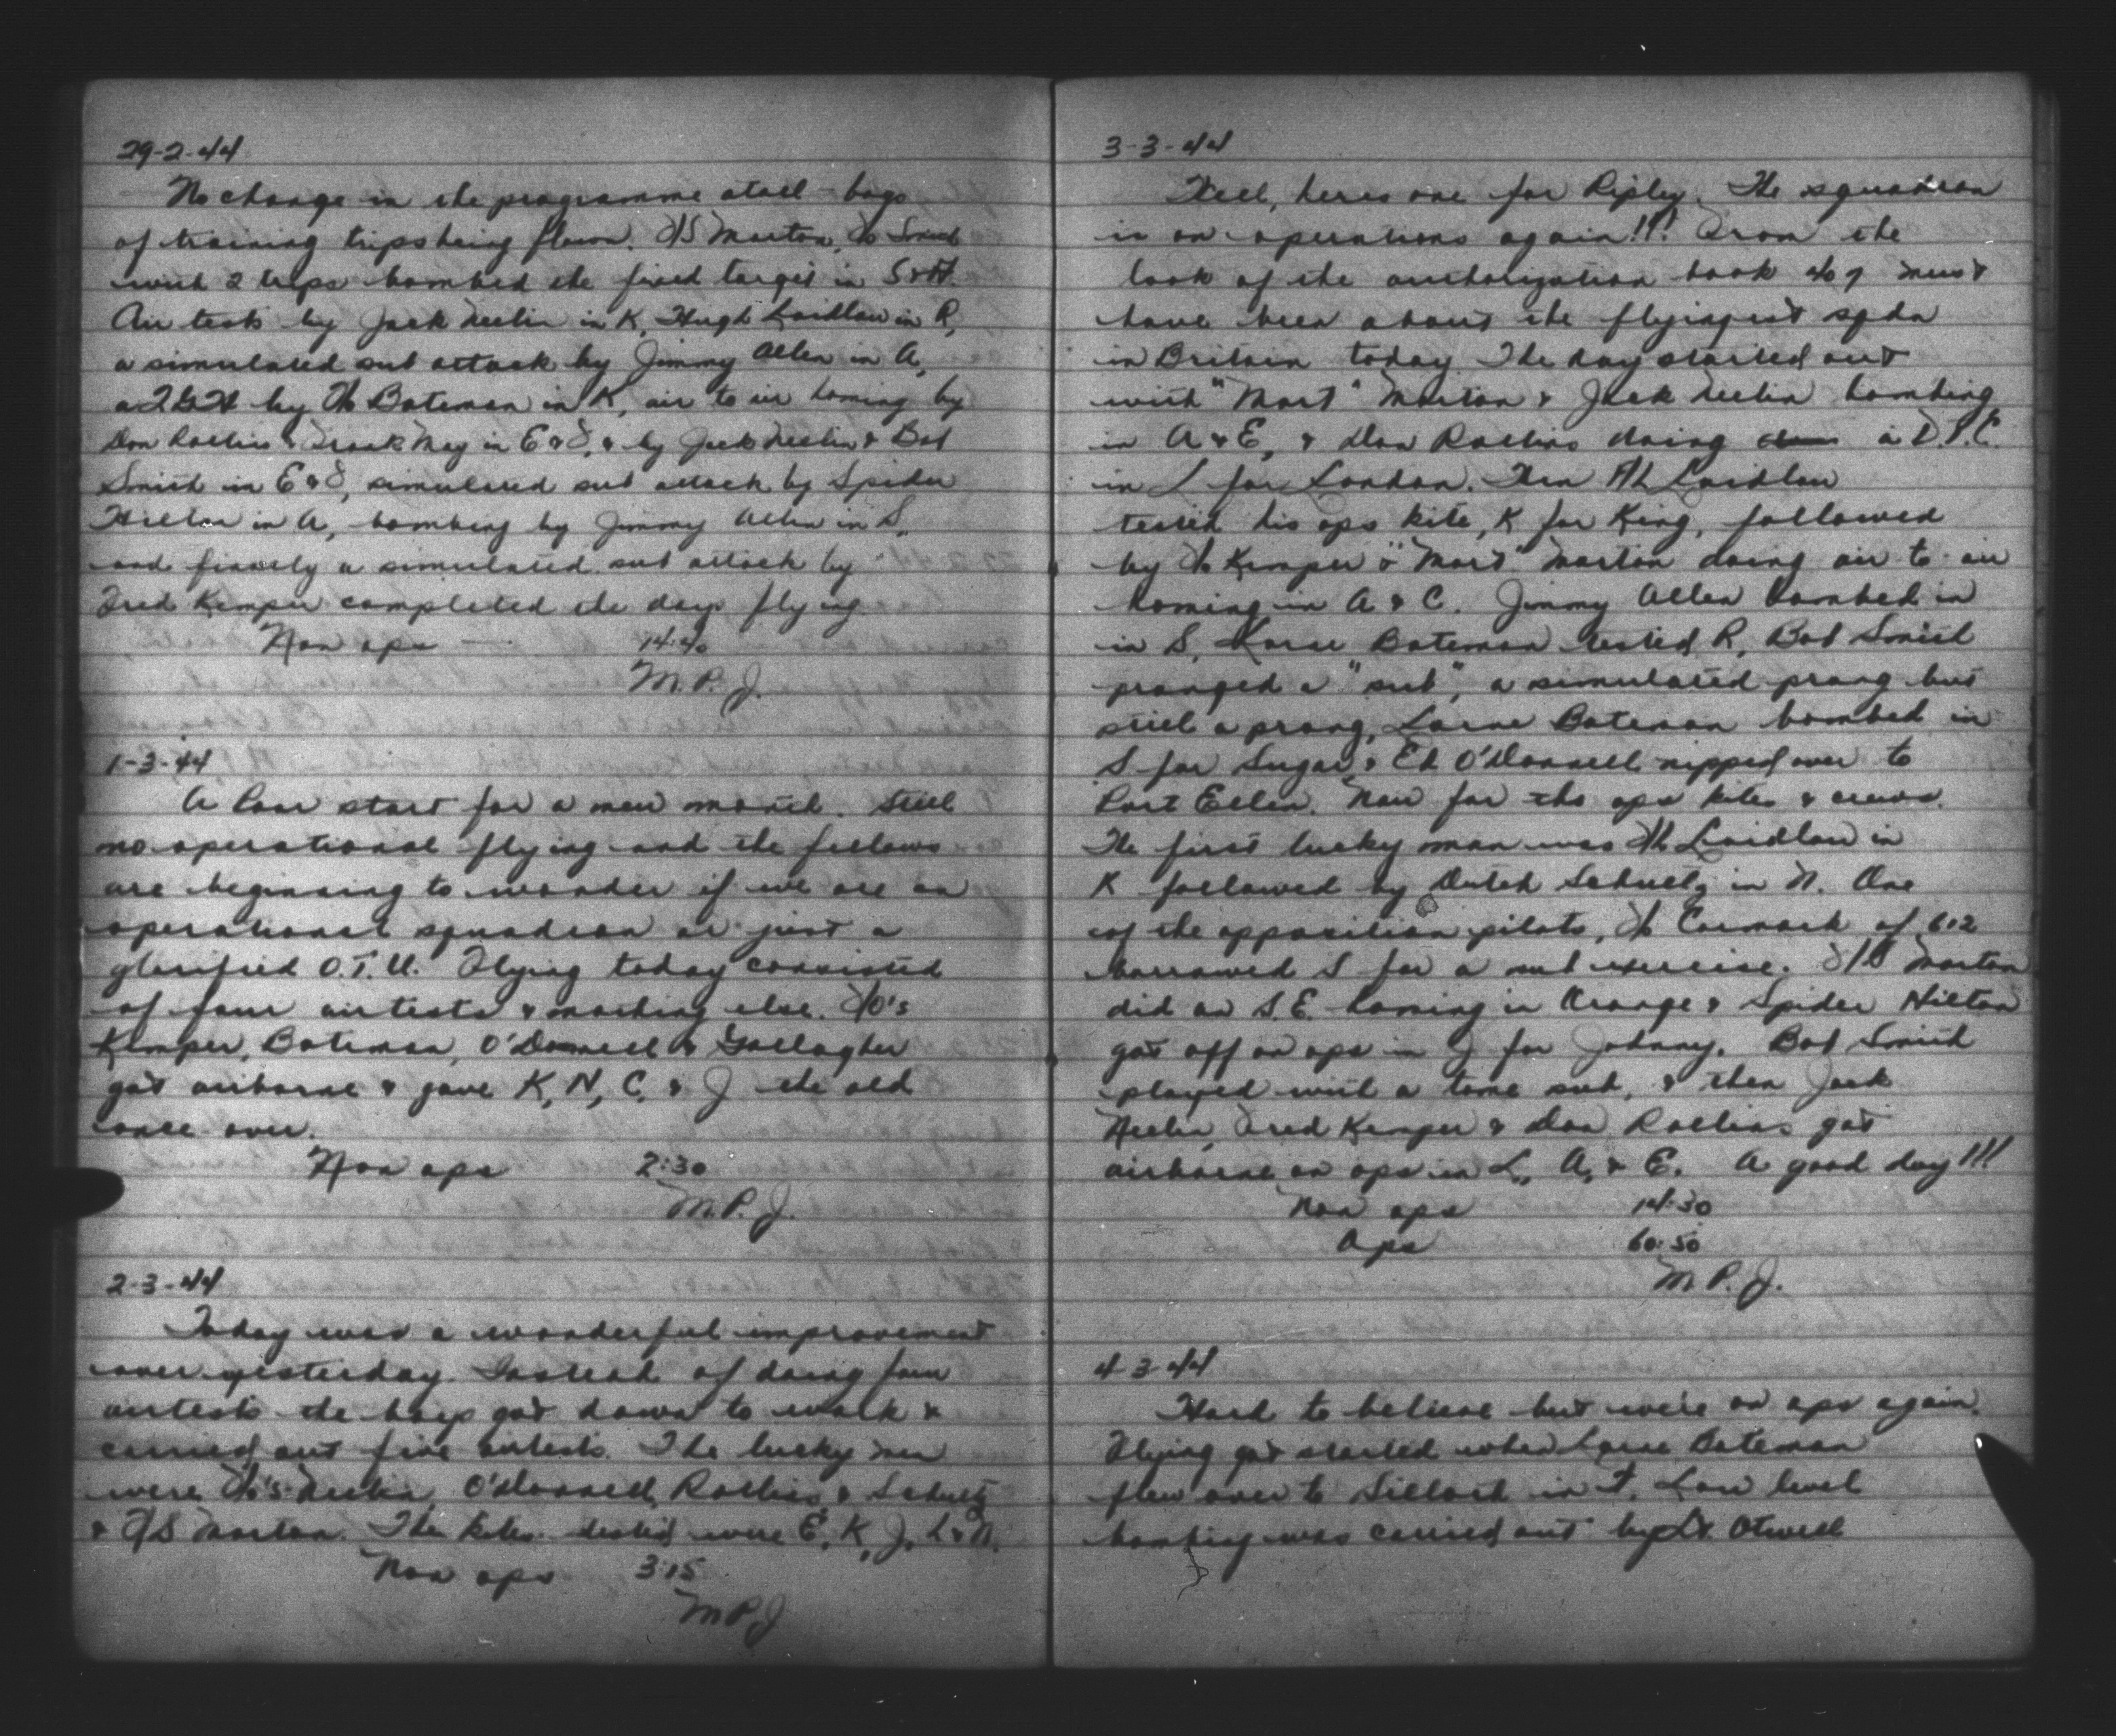 29-2-44
No change in the programme atall - bags
of training trips being flown. F/S Morton, F/O Smith
with 2 trips bombed the fixed target in S & H.
Air tests by Jack Neelin in K, Hugh Laidlaw in R,
a simulated sub attack by Jimmy Allen in A,
a by F/O Bateman in K, air to air homing by
Don Rollins & Frank May in E & S, & by Jack Neelin & Bob
Smith in E & S, simulated sub attack by Spider
Hilton in A, bombing by Jimmy Allen in S,
and finally a simulated sub attack by
Fred Kemper completed the days flying.
Non ops — 14:40
M.P.J.
1-3-44
A poor start for a new month. Still
no operational flying and the fellows
are beginning to wonder if we are an
operational squadron or just a
glorified O.T.U. Flying today consisted
of four airtests & nothing else. F/O's
Kemper, Bateman, O'Donnell & Gallagher
got airborne & gave K, N, C, & J the old
once over.
Non ops 2:30
M.P.J.
2-3-44
Today was a wonderful improvement
over yesterday. Instead of doing four
airtests the boys got down to work &
carried out five airtests. The lucky men
were F/O's Neelin, O'Donnell, Rollins & Schultz
& F/S Morton. The kites tested were E, K, J, L & N.
Non ops 3:15
M.P.J
3-3-44
Well, heres one for Ripley. The squadron
is on operations again!!! From the
look of the authorization book 407 must
have been about the flyingest sqdn
in Britain today. The day started out
with "Mort" Morton & Jack Neelin bombing
in A & E, & Don Rollins doing a
in L for London. Then F/L Laidlaw
tested his ops kite, K for King, followed
by F/O Kemper & "Mort" Morton doing air to air
homing in A & C. Jimmy Allen bombed in
in S, Lorne Bateman tested R, Bob Smith
pranged a "sub", a simulated prang but
still a prang, Lorne Bateman bombed in
S for Sugar & Ed O'Donnell nipped over to
Port Ellen. Now for the ops kites & crews.
The first lucky man was F/L Laidlaw in
K followed by Dutch Schultz in N. One
of the opposition pilots, F/O Cormack of 612
borrowed S for a sub exercise. F/S Morton
did an S.E. homing in Orange & Spider Hilton
got off on ops in J for Johnny. Bob Smith
played with a tame sub, & then Jack
Neelin, Fred Kemper & Don Rollins got
airborne on ops in L, A, & E. A good day!!!
Non ops 14:30
Ops 60:50
M.P.J.
4-3-44
Hard to believe but we're on ops again.
Flying got started when Lorne Bateman
flew over to Silloth in F. Low level
bombing was carried out by Lt. Otwell